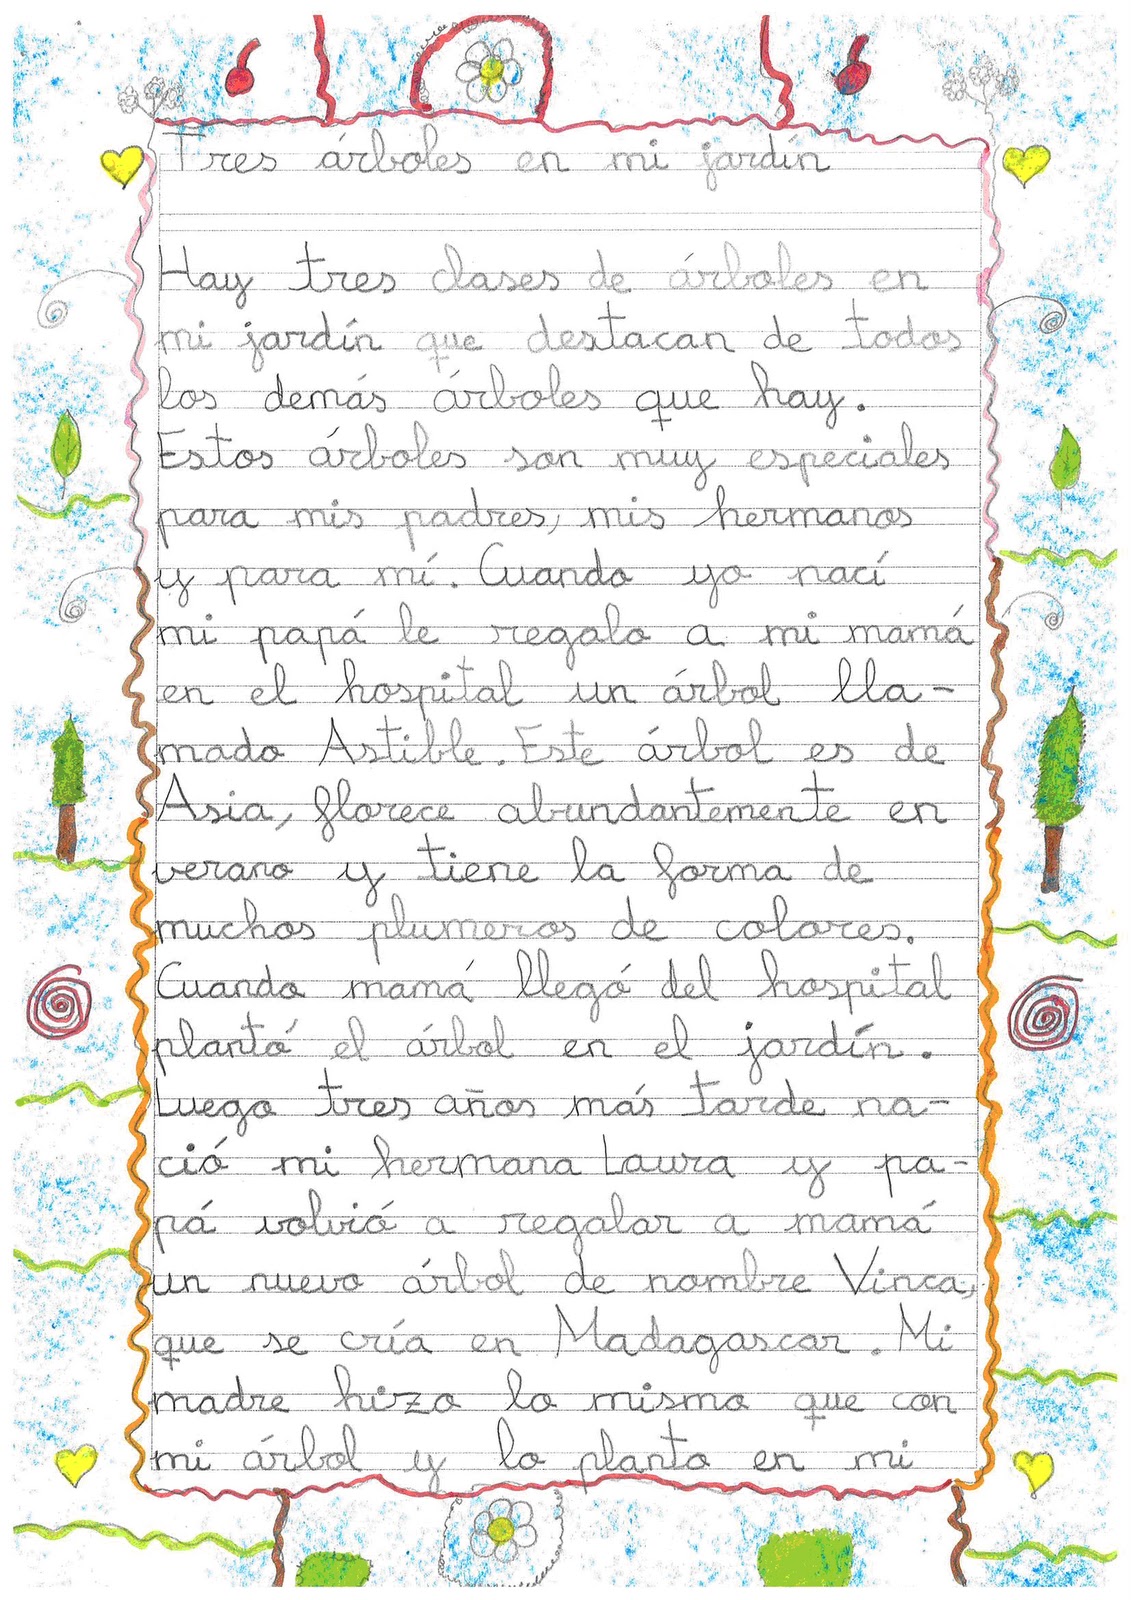 Tres árboles en mi jardín
Hay tres clases de árboles en
mi jardín que destacan de todos
los demás árboles que hay.
Estos árboles son muy especiales
para mis padres, mis hermanos
y para mí. Cuando yo nací
mi papá le regalo a mi mamá
en el hospital un árbol lla-
mado Astible. Este árbol es de
Asia, florece abundantemente en
verano y tiene la forma de
muchos plumeros de colores.
Cuando mamá llegó del hospital
plantó el árbol en el jardín.
Luego tres años más tarde na-
ció mi hermana Laura y pa-
pá volvió a regalar a mamá
un nuevo árbol de nombre Vinca,
que se cría en Madagascar. Mi
madre hizo lo mismo que con
mi árbol y lo planto en mi